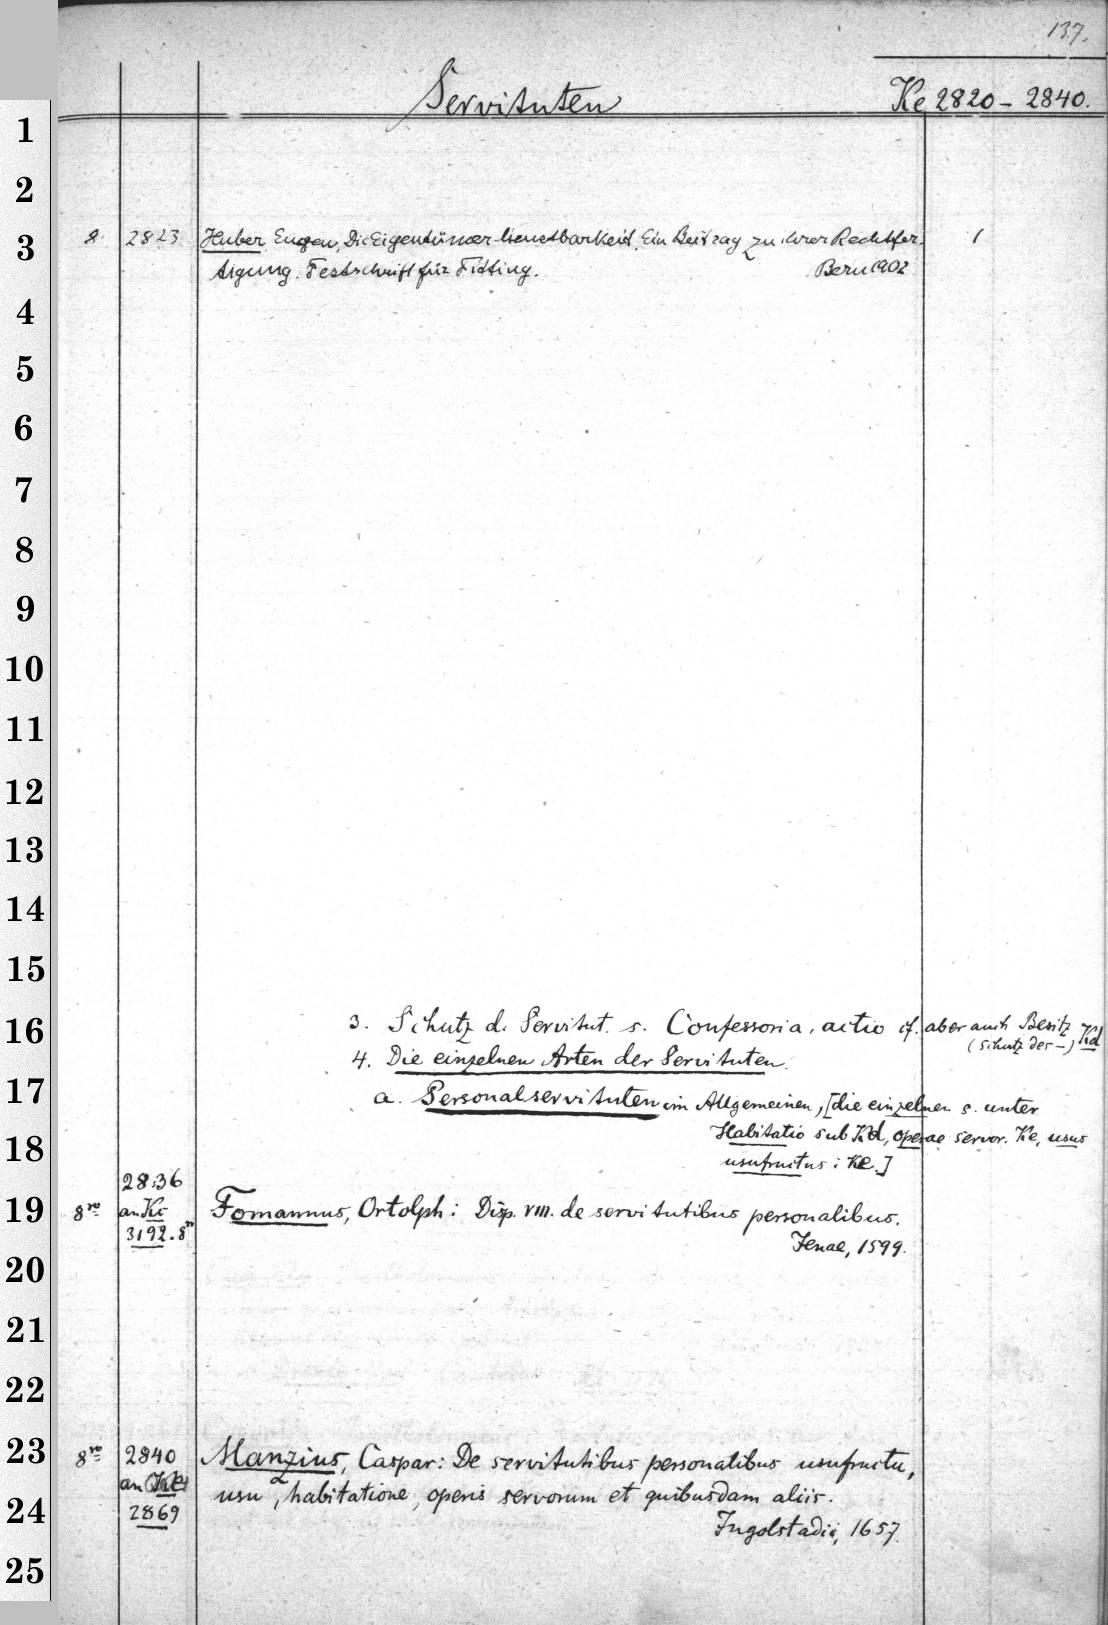 137.
Servituten Ke 2820 - 2840.
1
2
3 8 2823 Huber Eugen, Die Eigentümerdienstbarkeit. Ein Beitrag zu ihrer Rechtfer- 1
tigung. Festschrift für Fitting. Bern 1902
4
5
6
7
8
9
10
11
12
13
14
15
16 3. Schutz d. Servitut. s. Confessoria, actio cf. aber auch Besitz Kd
(Schutz des -)
4. Die einzelnen Arten der Servituten.
17 a. Personalservituten im Allgemeinen, [die einzelnen s. unter
18 Habitatio sub Kd, operae servor. Ke, usus
ususfructus: Ke.]
2836
19 8ro an Ke Fomannus, Ortolph: Disp. VIII. de servitutibus personalibus.
3192.8ro Jenae, 1599.
20
21
22
23 8ro 2840 Manzius, Caspar: De servitutibus personalibus usufructu,
an Ke usu, habitatione, operis servorum et quibusdam aliis.
24 2869 Ingolstadii, 1657.
25